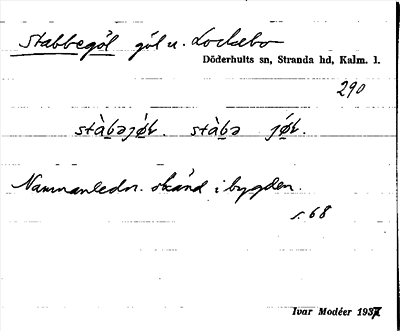 Stabbegöl göl u. Lockebo
Döderhults sn, Stranda hd, Kalm. l.
290
stàbəjø̀l. stàbə jø̀l.
Namnanledn. okänd i bygden.
s. 68
Ivar Modéer 1937